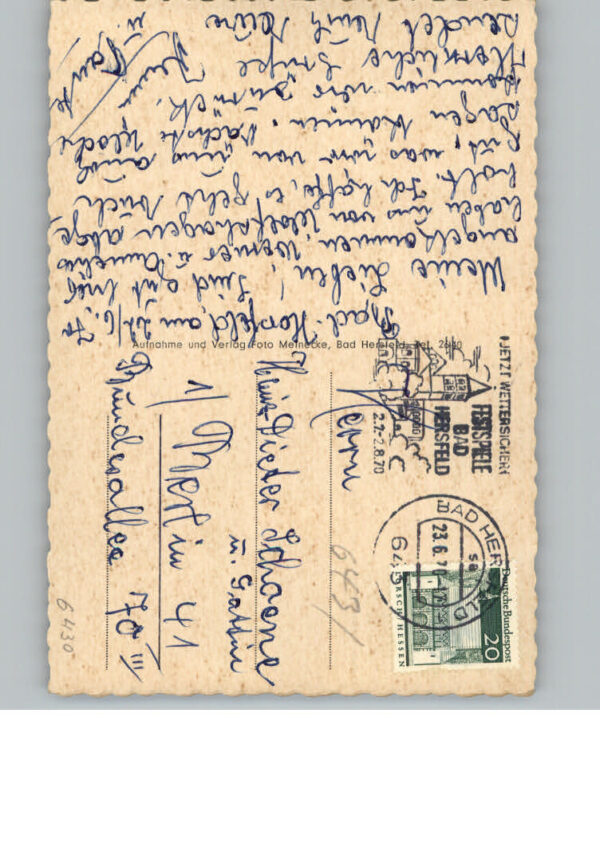 Bad-Hersfeld, am 22/6. 70
Meine Lieben! Sind gut hier
angekommen, Werner u. Annelies
haben uns von Wolfshagen abge
holt. Ich hoffe, es geht Euch
gut, was wir von uns auch
sagen können. Nächste Woche
kommen wir zurück.
Herzliche Grüße
sendet Euch Eure
u. Tante
Aufnahme und Verlag Foto Meinecke, Bad Hersfeld, Tel. 2640
JETZT WETTERSICHER!
FESTSPIELE
BAD
HERSFELD
2.7.-2.8.70
BAD HERSFELD
23.6.70
643
Deutsche Bundespost
20
LORSCH/HESSEN
Herrn
Heinz-Dieter Schoene
u. Gattin
1/ Berlin 41
Bundesallee 70 III
6431
6430